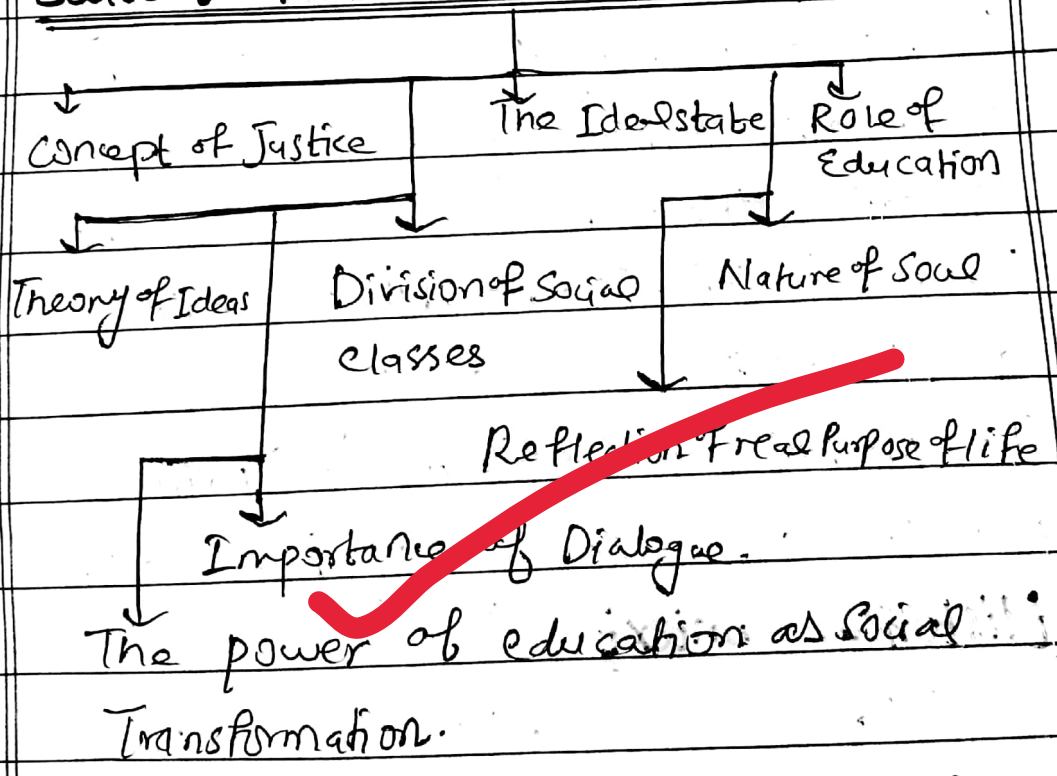 The Ideal state
Role of
Education
Concept of Justice
Theory of Ideas
Division of Social
Classes
Nature of Soul
Reflection of real Purpose of life
Importance of Dialogue.
The power of education as Social
Transformation.